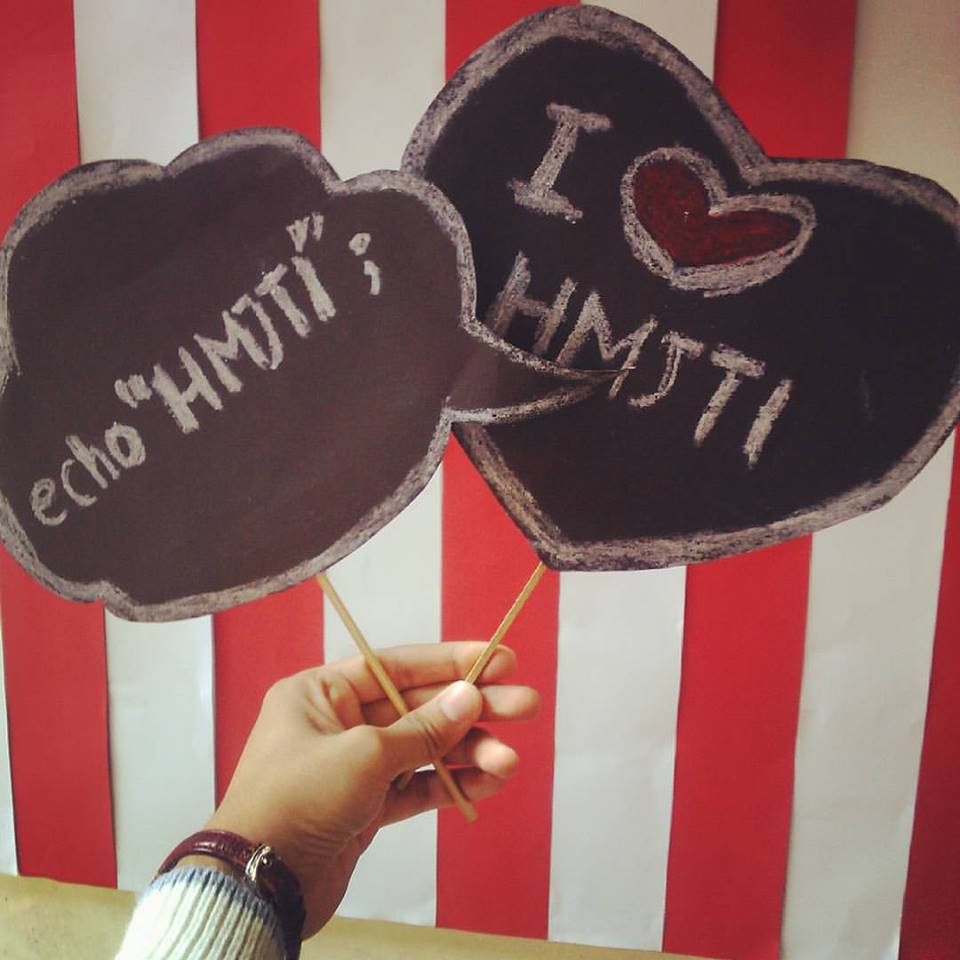 echo "HMJTI";
I ❤
HMJTI